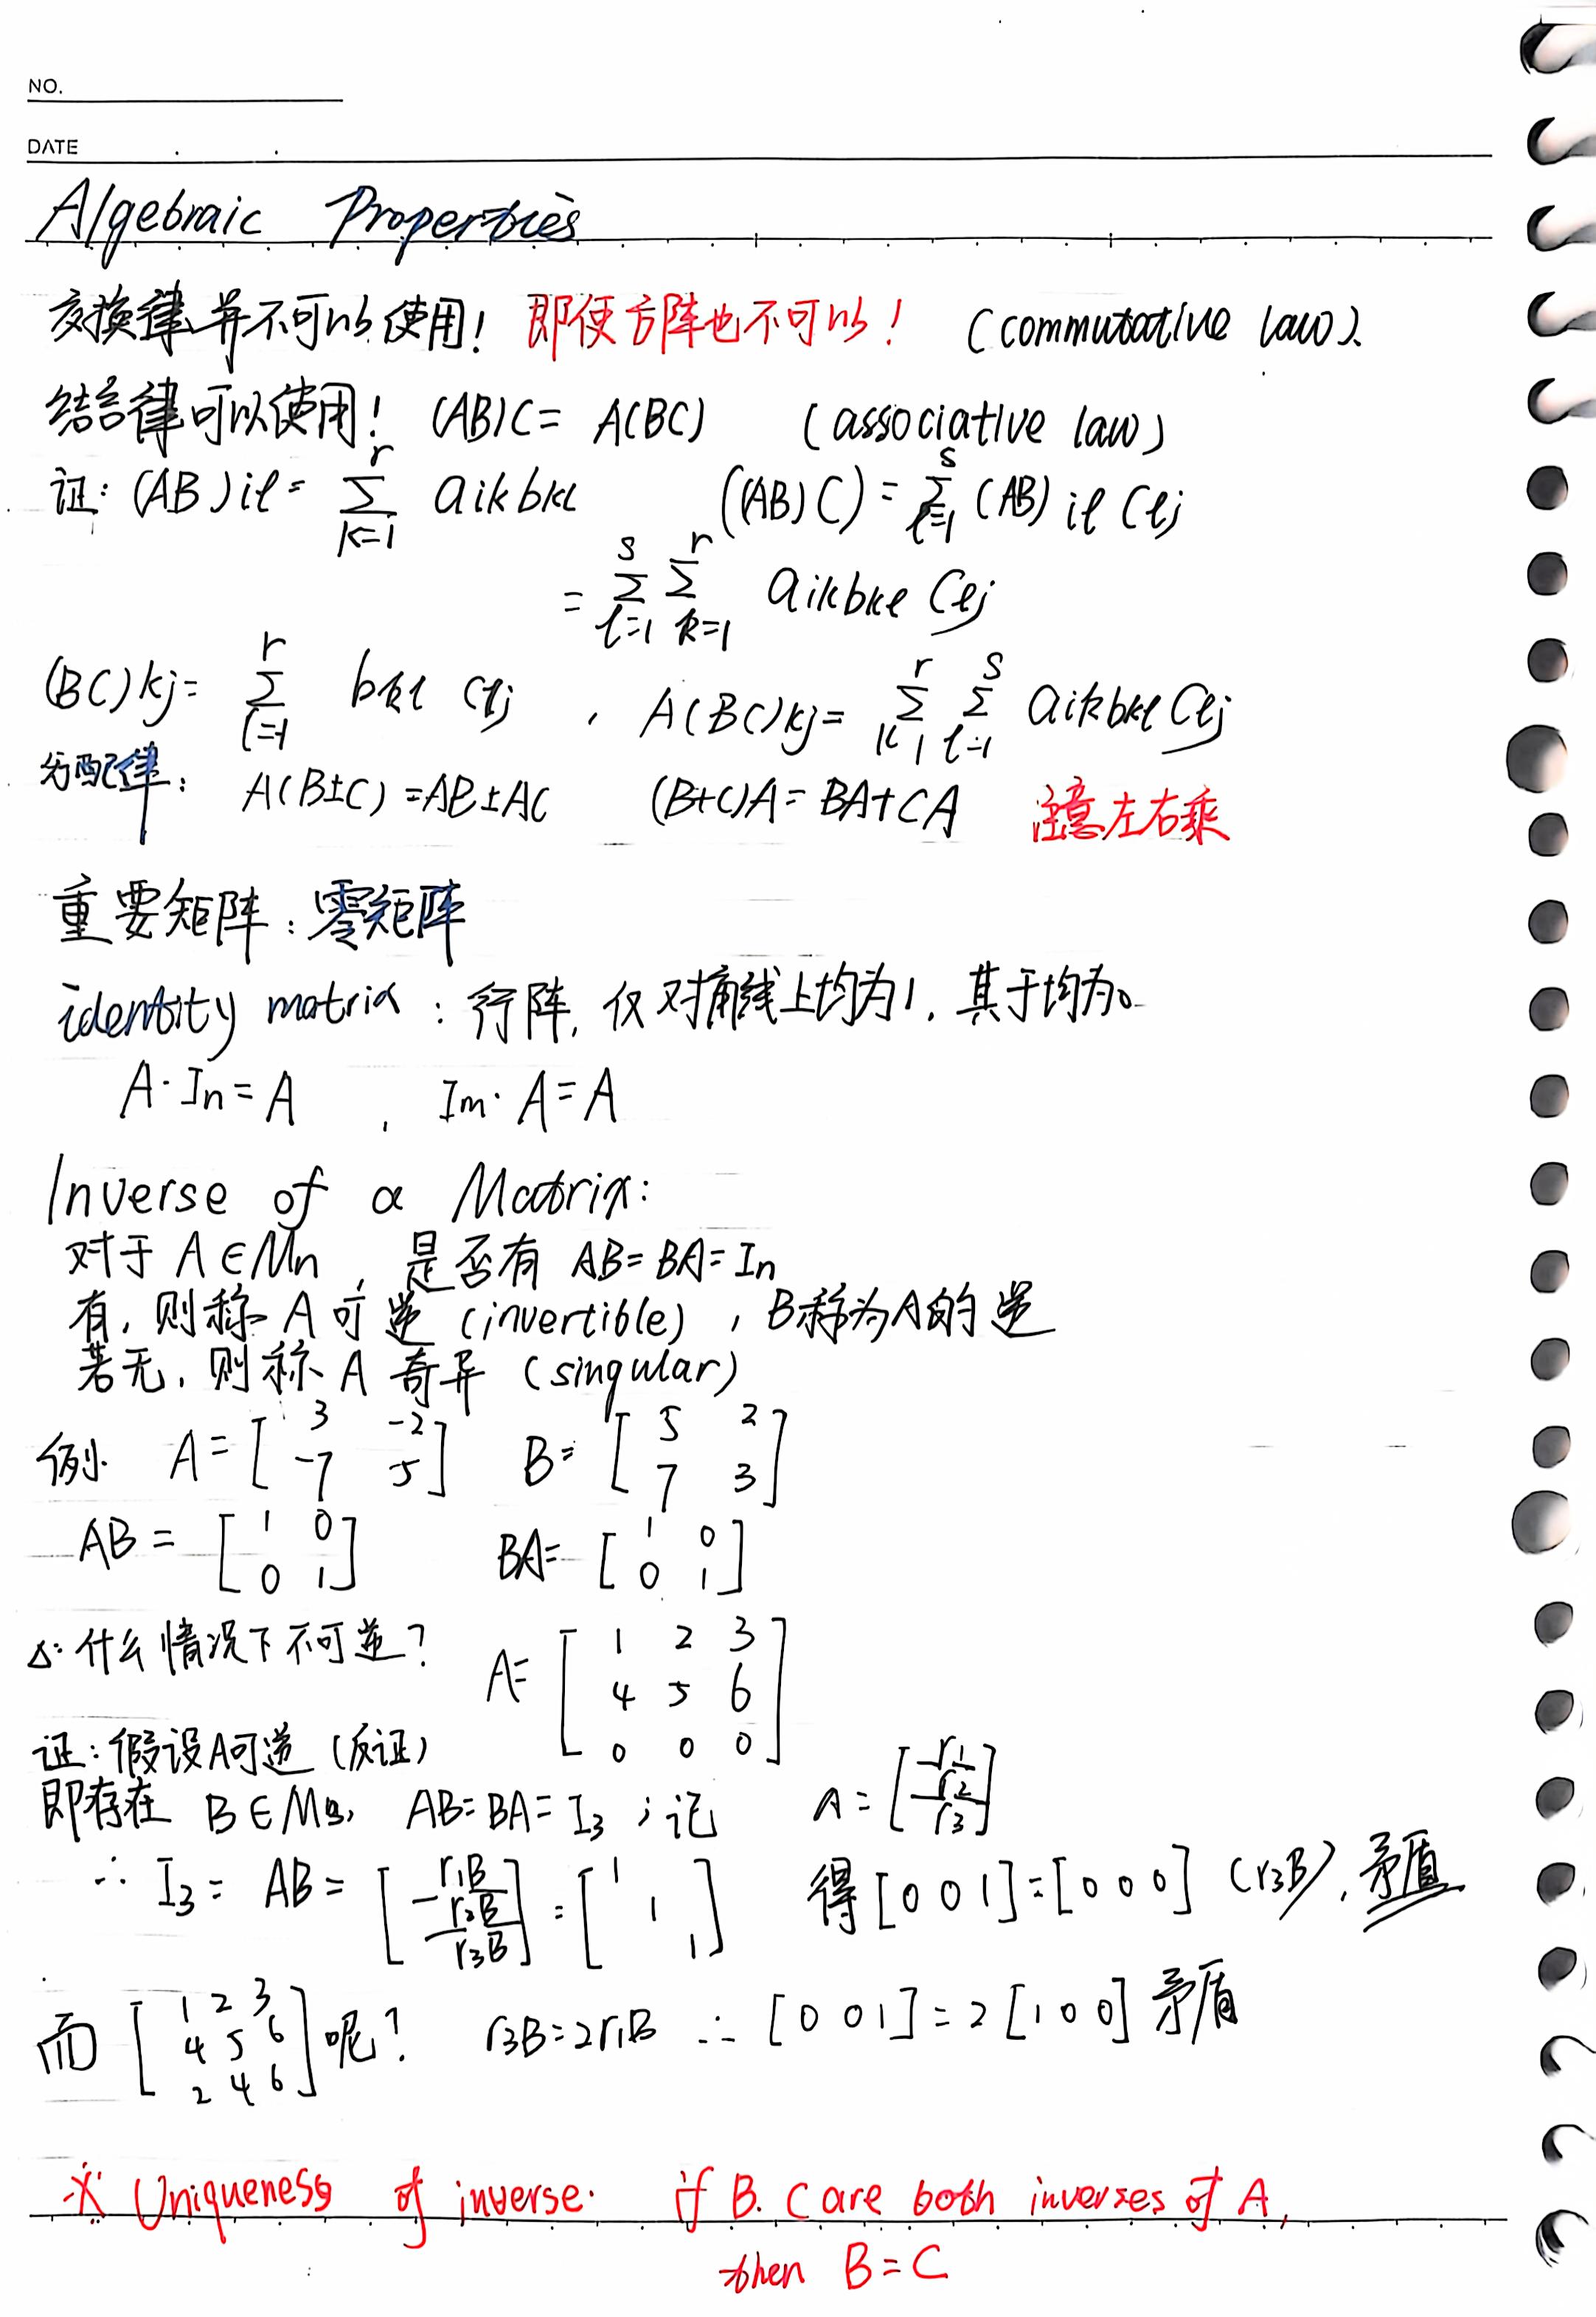 NO.
DATE
Algebraic Properties
交换律并不可以使用! 即使方阵也不可以! (commutative law).
结合律可以使用! (AB)C = A(BC) (associative law)
证: (AB)iℓ = Σ_{k=1}^{r} aik bkℓ ((AB)C) = Σ_{ℓ=1}^{s} (AB)iℓ Cℓj
= Σ_{ℓ=1}^{s} Σ_{k=1}^{r} aik bkℓ Cℓj
(BC)kj = Σ_{l=1}^{r} bkl Clj , A(BC)kj = Σ_{k=1}^{r} Σ_{ℓ=1}^{s} aik bkℓ Cℓj
分配律: A(B±C) = AB±AC (B+C)A = BA+CA 注意左右乘
重要矩阵: 零矩阵
identity matrix : 行阵, 仅对角线上均为1, 其于均为0
A·In = A , Im·A = A
Inverse of a Matrix:
对于 A∈Mn, 是否有 AB=BA=In
有, 则称 A 可逆 (invertible), B称为A的逆
若无, 则称 A 奇异 (singular)
例. A = [3 -2; -7 5] B = [5 2; 7 3]
AB = [1 0; 0 1] BA = [1 0; 0 1]
Δ: 什么情况下不可逆? A = [1 2 3; 4 5 6; 0 0 0]
证: 假设A可逆 (反证)
即存在 B∈M3, AB=BA=I3 ; 记 A = [r1; r2; r3]
∴ I3 = AB = [r1B; r2B; r3B] = [1 1 1] 得 [0 0 1] = [0 0 0] (r3B), 矛盾
而 [1 2 3; 4 5 6; 2 4 6] 呢? r3B = 2r1B ∴ [0 0 1] = 2[1 0 0] 矛盾
※ Uniqueness of inverse. if B. C are both inverses of A,
then B = C